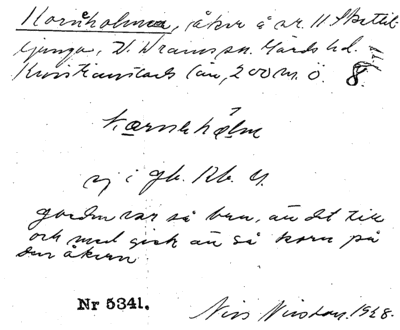 Kornholmen, åker å nr. 11 Skettil
ljunga, V. Vrams sn. Gärds hd.
Kristianstads län, 200 m. ö. 8
kornhålm
ej i gb. Kb. G.
jorden var så bra, än det till
och med gick än så korn på
den åkern
Nr 5341.
Nils Nilsson. 1928.